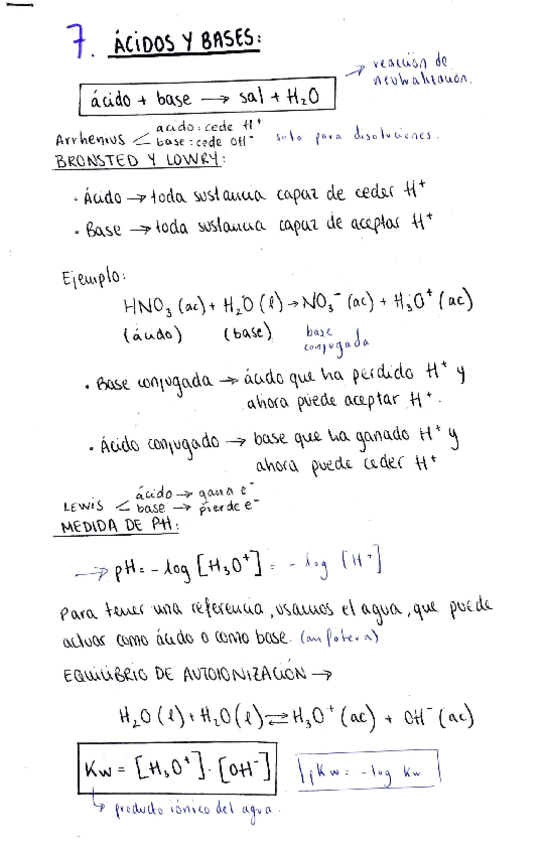 7. ÁCIDOS Y BASES:
ácido + base → sal + H₂O → reacción de neutralización.
Arrhenius < ácido: cede H⁺
base: cede OH⁻ solo para disoluciones.
BRONSTED Y LOWRY:
· Ácido → toda sustancia capaz de ceder H⁺
· Base → toda sustancia capaz de aceptar H⁺
Ejemplo:
HNO₃ (ac) + H₂O (l) → NO₃⁻ (ac) + H₃O⁺ (ac)
(ácido) (base) base conjugada
· Base conjugada → ácido que ha perdido H⁺ y
ahora puede aceptar H⁺.
· Ácido conjugado → base que ha ganado H⁺ y
ahora puede ceder H⁺
LEWIS < ácido → gana e⁻
base → pierde e⁻
MEDIDA DE PH:
→ pH = -log [H₃O⁺] = -log [H⁺]
Para tener una referencia, usamos el agua, que puede
actuar como ácido o como base. (anfótera)
EQUILIBRIO DE AUTOIONIZACIÓN →
H₂O (l) + H₂O (l) ⇌ H₃O⁺ (ac) + OH⁻ (ac)
Kw = [H₃O⁺] · [OH⁻] pKw = -log Kw
↳ producto iónico del agua.